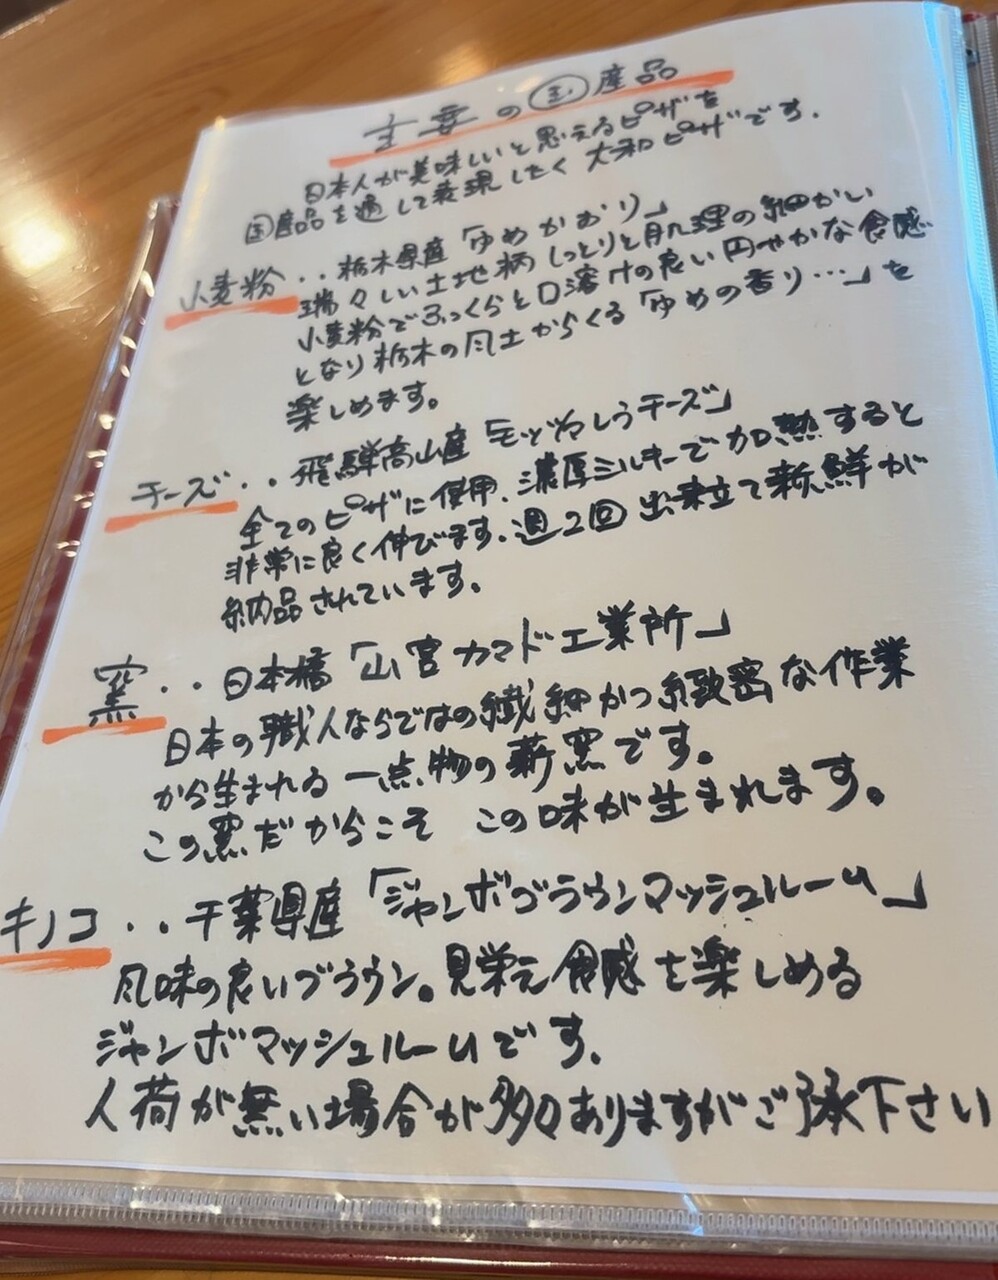 主要の国産品
日本人が美味しいと思えるピザを
国産品を通して表現したく 大和ピザです.
小麦粉‥栃木県産「ゆめかおり」
瑞々しい土地柄しっとりと肌理の細かい
小麦粉でふっくらと口溶けの良い円やかな食感
となり栃木の風土からくる「ゆめの香り…」を
楽しめます。
チーズ‥飛騨高山産「モッツァレラチーズ」
全てのピザに使用. 濃厚シルキーで加熱すると
非常に良く伸びます. 週2回 出来立て新鮮が
納品されています。
窯‥日本橋「山宮カマド工業所」
日本の職人ならではの繊細かつ緻密な作業
から生まれる 一点物の薪窯です。
この窯だからこそ この味が生まれます。
キノコ‥千葉県産「ジャンボブラウンマッシュルーム」
風味の良いブラウン。見栄え食感を楽しめる
ジャンボマッシュルームです.
入荷が無い場合が多々ありますがご了承下さい